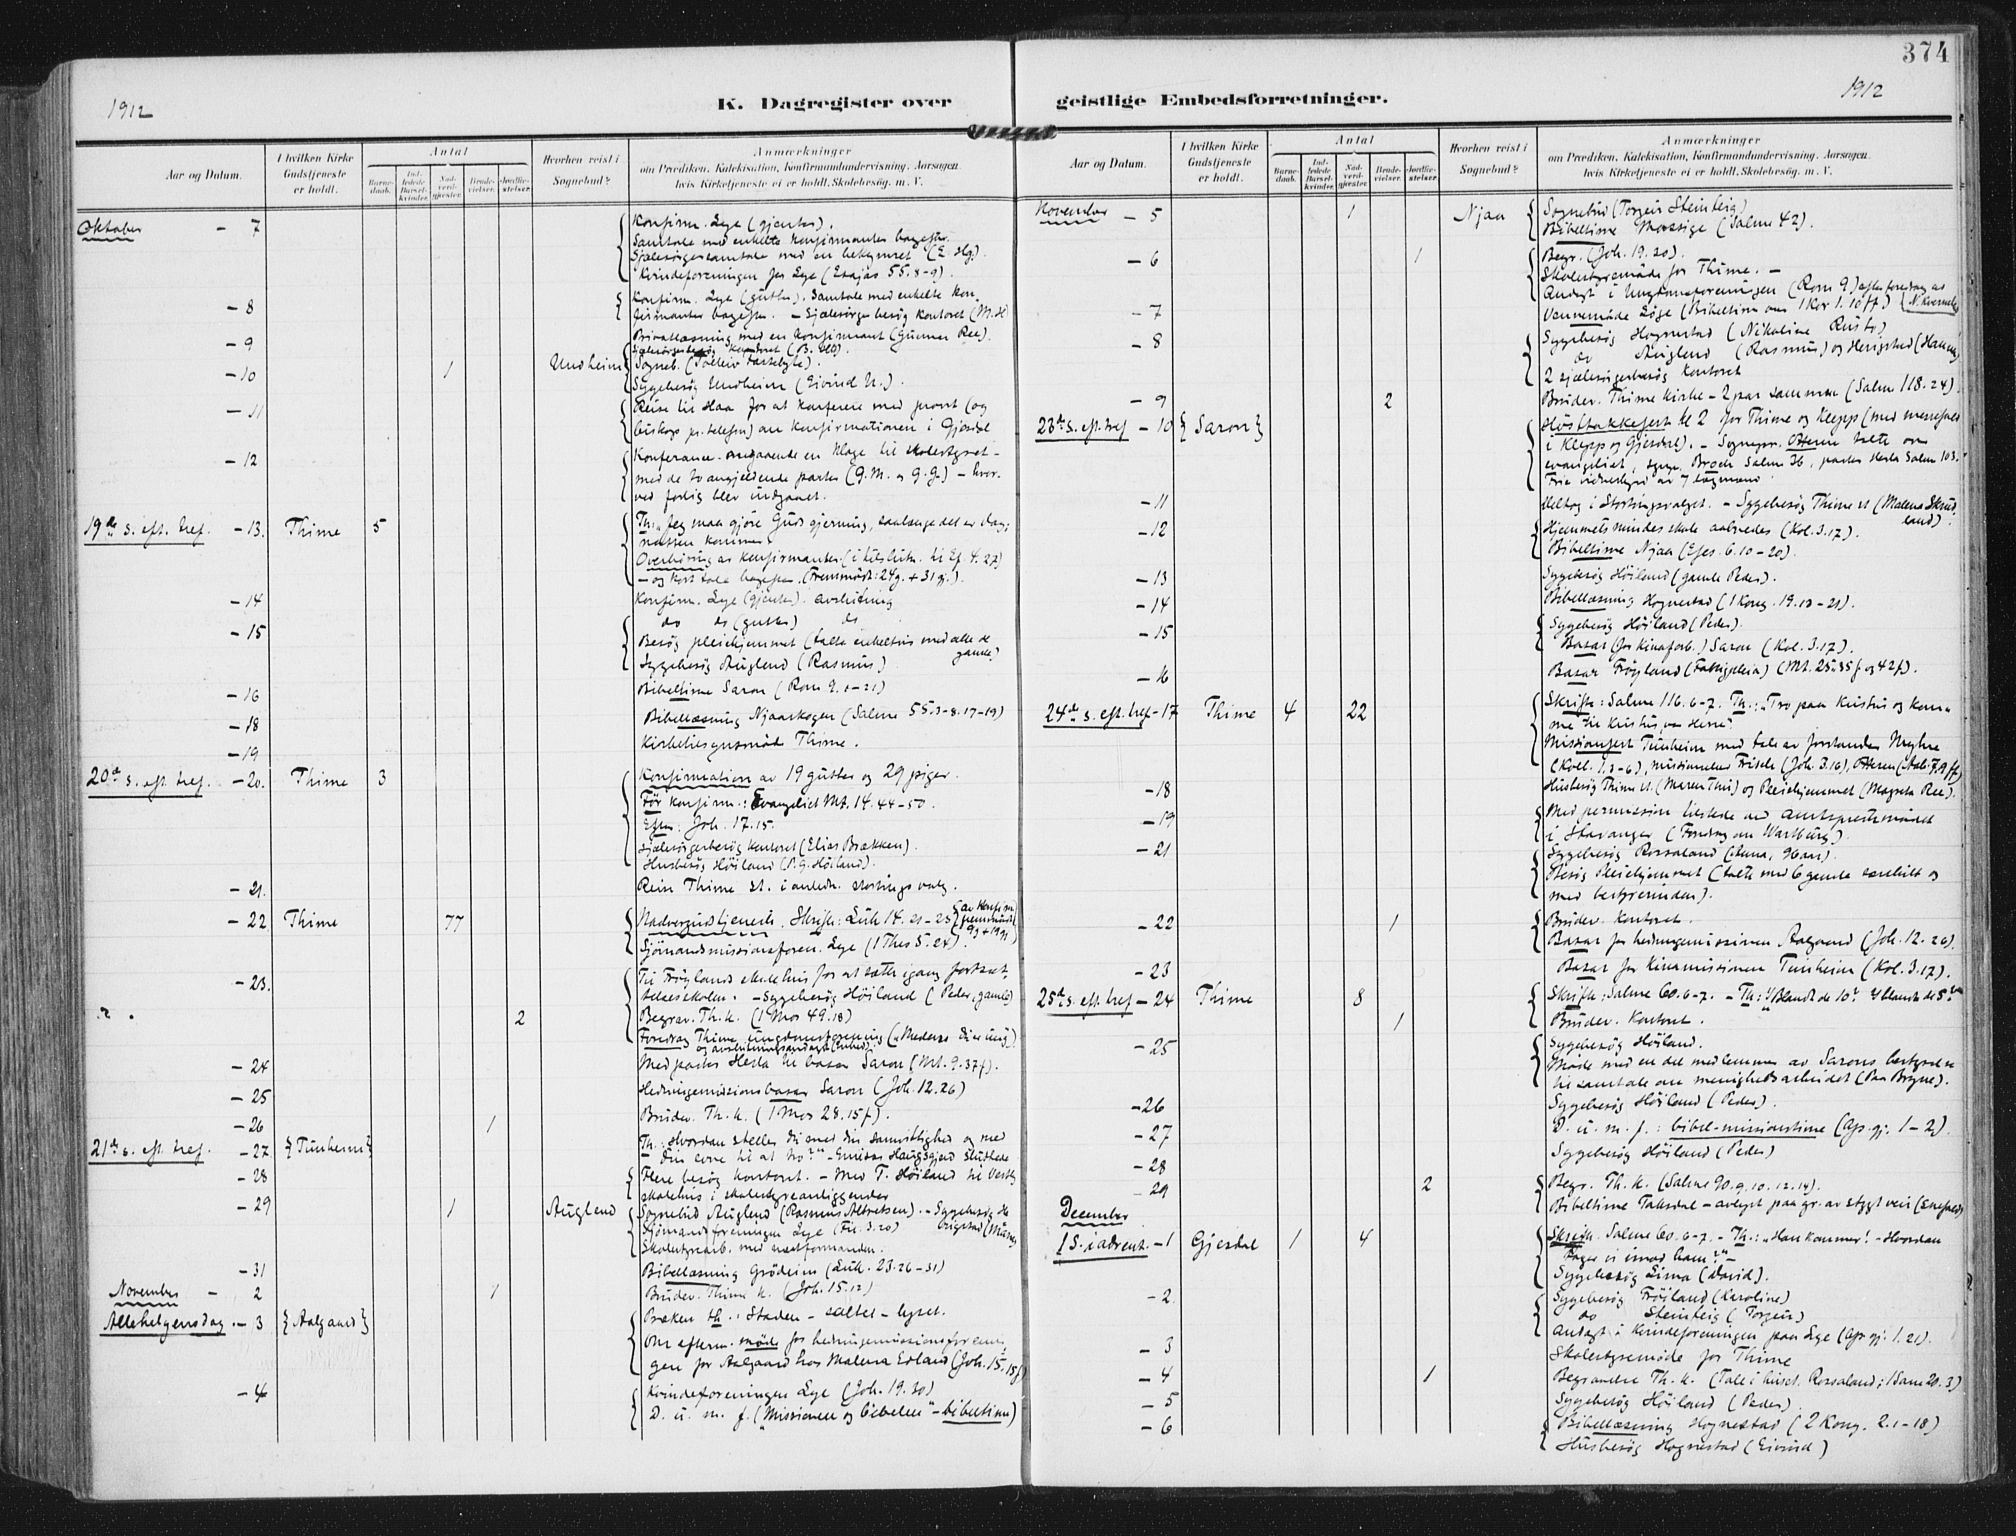 374
1912
K. Dagregister over
geistlige Embedsforretninger.
1912
Aar og Datum.
I hvilken Kirke Gudstjeneste er holdt.
Antal
Barnedaab.
Indledede Barselkvinder.
Nadverdgjester.
Brudevielser.
Jordfæstelser.
Hvorhen reist i Sognebud?
Anmærkninger
om Prædiken, Katekisation, Konfirmandundervisning, Aarsagen,
hvis Kirketjeneste ei er holdt, Skolebesøg, m. V.
Oktober - 7
Konfirm. Lye (gjenter).
Samtale med enkelte konfirmanter bagefter.
Sjælesørgersamtale med en bekymret
Kvindeforeningen for Lye (Esajas 55.8-9).
- 8
Konfirm. Lye (gutter). Samtale med enkelte kon-
firmanter bagefter. - Sjælesørgerbesøg kontoret (M. H)
- 9
Privatlæsning med en konfirmant (Gunnar Ree).
Sjælesørgerbesøg kontoret
- 10 1 Undheim
Sogneb.
Sygebesøg Undheim (Eivind U.).
- 11
Reise til Haa for at konferere med provst (og
biskop pr. telefon) om konfirmationen i Gjesdal
- 12
Konferance angaaende en klage til skolestyret -
med de vedkommende parter (G.M. og G.G) - hvor-
ved forlig blev indgaaet.
19de s. eft. tref. - 13. Thime 5
Th: "Jeg maa gjøre Guds gjerning, saalænge det er dag;
natten kommer
Overhøring av konfirmanter
- og kort tale bagefter. (Fremmødt: 24 g. + 31 pj.).
- 14
Konfirm. Lye (gjenter). avslutning
- 15
do do (gutter) do
Besøg pleiehjemmet (talte enkeltvis med alle de
gamle)
Sygebesøg Auglend (Rasmus)
- 16
Bibeltime Saron (Rom 9.1-21)
- 18
Bibellæsning Njaaskogen (Salme 55.3-8.17-19)
- 19
Kirketilsynsmøde Thime.
20de s. eft. tref. - 20. Thime 3
Konfirmation av 19 gutter og 29 piger.
Før konfirm.: Evangeliet Mt. 14.44-50.
Efter: Joh. 17.15.
Sjælesørgerbesøg kontoret (Elias Brækken).
Husbesøg Høiland (P.G. Høiland).
- 21.
Rein Thime st. i anledn. stortingsvalg.
- 22 Thime 77
Nadvergudstjeneste. Skrift: Luk 14.21-23
Sjømandsmissionsforen. Lye (1 Thes 5.24).
- 23.
Til Frøylands skolehus for at sætte igang fortsæt-
telsesskolen. - Sygebesøg Høiland (Peder, gamle)
2
Begrav. Th. k. (1 Mos 49.18)
Foredrag Thime ungdomsforening
- 24
Med pastor Hesla til basar Saron (Mt. 9.37f).
- 25
Hedningemissionsbasar Saron (Joh. 12.26)
- 26 1
Brudev. Th. k. (1 Mos 28.15f).
21de s. eft. tref. - 27 {Tunheim}
Th.: Hvordan steller du med din samvittighed og med
din evne til at tro?" - Emissær Haugsgjerd sluttede
- 28
Flere besøg kontoret. - Med T. Høiland til Vestly
skolehus i skolestyreanliggender
- 29 1 Auglend
Sognebud Auglend (Rasmus Alfredsen).
Sjømandsforeningen Lye (Fil. 3.20)
Skolestyrearb. med næstformanden.
- 31
Bibellæsning Grødeim (Luk. 23.26-31)
November - 2 1
Brudev. Thime k. (Joh. 15.12)
Allehelgensdag - 3 {Aalgaard}
Præken th.: Staden - saltet - lyset.
Om efterm. møde for hedningemissionsforenin-
gen for Aalgaard hos Malena Edland (Joh. 15.15f)
- 4
Kvindeforeningen Lye (Joh. 19.30)
D. u. m. f. ("Missionen og bibelen" - bibeltime)
Aar og Datum.
I hvilken Kirke Gudstjeneste er holdt.
Antal
Barnedaab.
Indledede Barselkvinder.
Nadverdgjester.
Brudevielser.
Jordfæstelser.
Hvorhen reist i Sognebud?
Anmærkninger
om Prædiken, Katekisation, Konfirmandundervisning, Aarsagen,
hvis Kirketjeneste ei er holdt, Skolebesøg, m. V.
November - 5 1 Njaa
Sognebud (Torgeir Steinteig)
Bibeltime Mossige (Salme 42).
- 6 1
Begr. (Joh. 19.30).
Skolestyremøde for Thime. -
Andagt i Ungdomsforeningen (Rom 9) efter foredrag av
N. Kverneland
- 7
Vennemøde Løge (Bibeltime om 1 Kor 1.10 ff)
- 8
Sygebesøg Hognestad (Nikoline
do Auglend (Rasmus) og Herigstad (Hanna)
2 sjælesørgerbesøg kontoret
- 9 2
Brudev. Thime kirke - 2 par sammen (Salm 118.24).
23de s. eft. tref. - 10 {Saron}
Høsttakkefest kl 2 for Thime og Klepp (med messefald
i Klepp og Gjesdal). - Sognepr. Otterin talte om
evangeliet, Salme 36, pastor Hesla Salm 103.
Frie vidnesbyrd av 7 lægmænd.
- 11
Deltog i Stortingsvalget. - Sygebesøg Thime st (Malena Skrud-
land).
- 12
Hjemmets mindes skole aabnedes (Kol. 3.17).
Bibeltime Njaa (Efes. 6.10-20).
- 13
Sygebesøg Høiland (gamle Peder).
- 14
Bibellæsning Hognestad (1 Kong. 19.13-21).
- 15
Sygebesøg Høiland (Peder).
Basar (for Kinaforb.) Saron (Kol. 3.17).
- 16
Basar Frøyland (Fattigpleia) (Mt. 25.35f og 42f).
24de s. eft. tref - 17 Thime 4 22
Skrift: Salme 116.6-7. Th.: "Tro paa Kristus og kom-
me til Kristus, vor Herre"
Missionsfest Tunheim med tale av forstander Myhre
(Koll. 1.3-6), missionær Frisch (Joh. 3.16), Otterin
- 18
Husbesøg Thime st. (Maren Thu) og Pleiehjemmet (Magreta Ree).
- 19
Med permission tilstede ved amtsprestemødet
i Stavanger (Foredrag om Wartburg).
- 21
Sygebesøg Rossaland (Anna, 96 aar).
Besøg Pleiehjemmet (talte med 6 gamle særskilt og
med bestyrerinden).
- 22 1
Brudev. kontoret.
Basar for hedningemissionen Aalgaard (Joh. 12.26).
- 23
Basar for Kinamissionen Tunheim (Kol. 3.17).
25de s. eft. tref - 24 Thime 8
Skrift: Salme 60.6-7. - Th: "1/ Blandt de 10? 2/ blandt de 5?"
1
Brudev. Kontoret.
- 25
Sygebesøg Høiland.
Møde med en del medlemmer av Sarons bestyrelse
til samtale om menighedsarbeidet (Paa Bryne).
- 26
Sygebesøg Høiland (Peder).
- 27
D. u. m. f.: bibel-missionstime (Ap. gj. 1-2).
- 28
Sygebesøg Høiland (Peder)
- 29 2
Begr. Th. k. (Salme 90.9.10.12.14).
Bibeltime Taksdal - avlyst paa gr. av stygt veir (snefald)
December
1 S. i advent. - 1 Gjesdal 1 4
Skrift. Salme 60.6-7. - Th.: "Han kommer! - Hvordan
tager vi imod ham?" -
Sygebesøg Lima (David).
- 2
Sygebesøg Frøiland (Karoline)
do Steinteig (Torgeir)
Andagt i Kvindeforeningen paa Lye (Ap. gj. 1.21).
- 3
Skolestyremøde for Thime
- 4 1
Begravelse Th. k. (Tale i huset. Rossaland; 1 Sam 20.3)
- 5
Sygebesøg Høiland (Peder)
- 6
Bibellæsning Hognestad (2 Kong. 2.1-18)
Husbesøg Hognestad (Eivind)